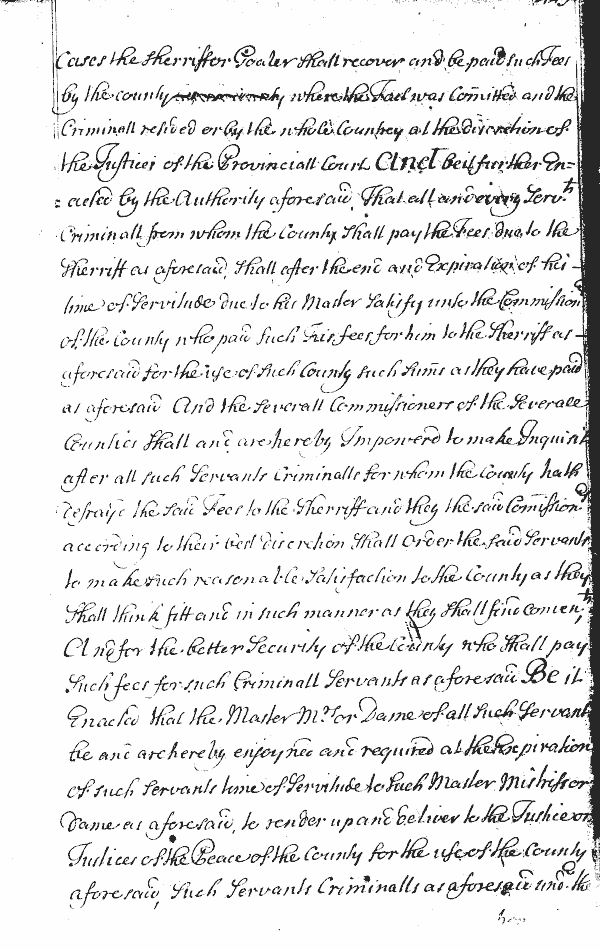 Cases the Sherriff or Goaler shall recover and be paid such Fees
by the county where the Fact was Comitted and the
Criminall resided or by the whole Countrey at the discretion of
the Justices of the Provinciall Court And be it further En=
=acted by the Authority aforesaid That all and every Servt
Criminall from whom the County shall pay the Fees due to the
Sherriff as aforesaid shall after the end and Expiration of his
time of Servitude due to his Master Satisfy unto the Commission
of the County who paid such his fees for him to the Sherriff as
aforesaid for the use of such County such sums as they have paid
as aforesaid And the severall Commissioners of the Severale
Counties shall and are hereby Impowerd to make Inquiri
after all such Servants Criminalls for whom the County hath
defrayd the said Fees to the Sherriff and they the said Comission
according to their best discretion shall Order the said Servants
to make such reasonable Satisfaction to the County as they
shall think fitt and in such manner as they shall find conven
And for the better Security of the County who shall pay
such fees for such Criminall Servants as aforesaid Be it
Enacted that the Master Mrs or Dame of all such Servants
be and are hereby enjoyned and required at the Expiration
of such servants time of Servitude to such Master Mistriss or
Dame as aforesaid, to render up and deliver to the Justice or
Justices of the Peace of the County for the use of the County
aforesaid, such Servants Criminalls as aforesaid and the